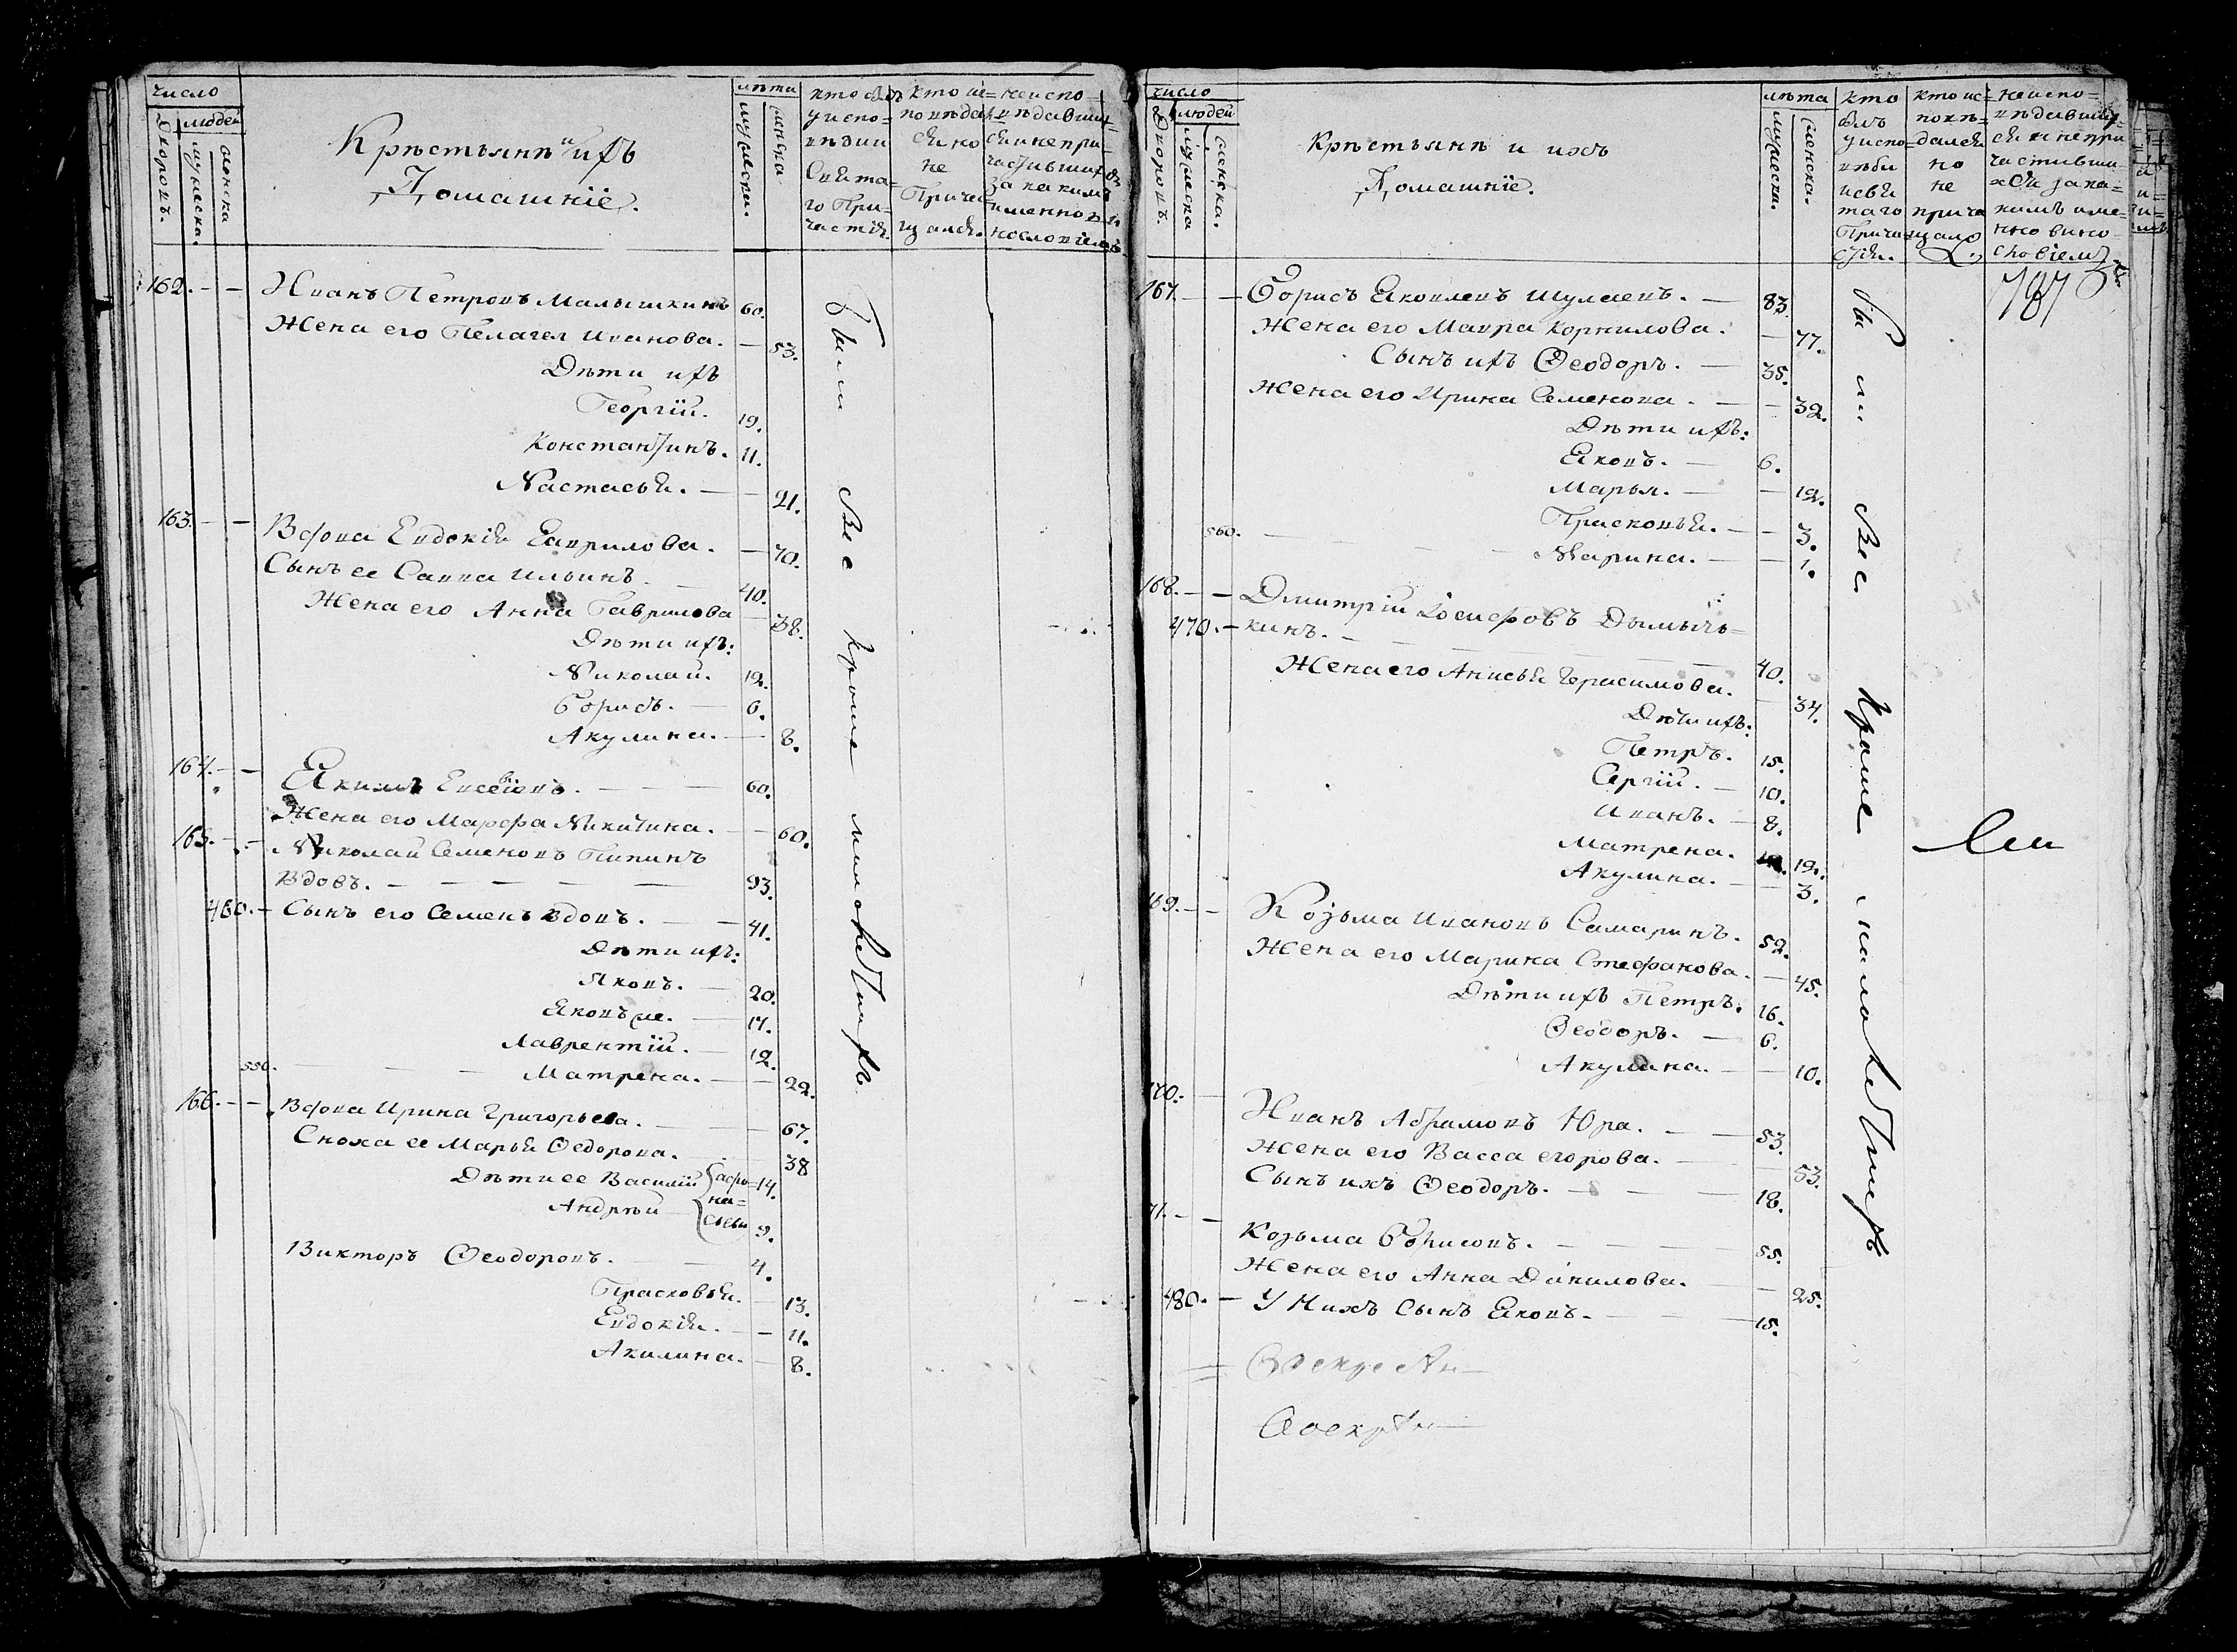 число
людей
Дворовъ.
мужеска.
женска
Крѣстьянѣ и ихъ
Домашніе.
лѣта
мужеска.
женска
кто былъ
у испо=
вѣди
Свята=
го При=
частія.
кто ис=
повѣдал
ся но
не
Прича
щался.
неиспо=
вѣдавших
ся и непри=
частившихся
за какимъ
именно ви
нословіемъ
162. – – Иванъ Петровъ Малышкинъ 60.
Жена его Пелагея Иванова. – 53.
Дѣти ихъ
Георгій. 19.
Константинъ. 11.
Настасья. – – 21.
163. – – Вдова Евдокія Гаврилова. – 70.
Сынъ ее Савва Ильинъ. – 40.
Жена его Анна Гаврилова – 38.
Дѣти ихъ:
Николай. 12.
Борисъ. – 6.
Акулина. – 8.
164. – – Якимъ Евсевіевъ. – – – 60.
Жена его Марфа Никитина. – – 60.
165. – – Николай Семеновъ Пипинъ
Вдовъ. – – – – – 93.
460. – Сынъ его Семенъ вдовъ. – – 41.
Дѣти ихъ:
Яковъ. – 20.
Яковъ же. – 17.
Лаврентій. – 12.
550. – – – Матрена. – – 22.
166. – – Вдова Ирина Григорьева. – – 67.
Сноха ее Марья Ѳедорова. – – 38
Дѣти ее Василій 14.
Андрѣй 9.
афо=
на=
сьевы
Викторъ Ѳеодоровъ. – – 4.
Прасковья. – 13.
Евдокія. – – 11.
Акилина. – 8.
Были Все кроме малолетнихъ
число
людей
Дворовъ.
мужеска
женска.
Крѣстьянѣ и ихъ
Домашніе.
лѣта
мужеска.
женска.
кто
былъ
у испо=
вѣди
исвя
таго
Прича
стія.
кто ис=
повѣ=
дался
но
не
прича
щалс
я.
неиспо=
вѣдавших
ся и непри
частивши=
хся за ка=
кимъ име=
нно вино
словіемъ
787
167. – – Борисъ Яковлевъ Шулаевъ. – 83.
Жена его Мавра Корнилова. – 77.
Сынъ ихъ Ѳеодоръ. – 35.
Жена его Ирина Семенова. – – 32.
Дѣти ихъ:
Яковъ. – 6.
Марья. – – 12.
Прасковья. – – 3.
560. – – – – Марина. – – 1.
168. – – Дмитрій Іосифовъ Дымыть=
470. – кинъ. – – – – – 40.
Жена его Анисья Герасимова. – 34.
Дѣти ихъ:
Петръ. 15.
Сергій. – 10.
Иванъ. – 8.
Матрена. 12.
Акулина. – – 3.
169. – – Козьма Ивановъ Самаринъ. 52.
Жена его Марина Стефанова. – 45.
Дѣти ихъ Петръ. 16.
Ѳеодоръ. – 6.
Акулина. – – 10.
170. – Иванъ Абрамовъ Юра. – – 53.
Жена его Васса егорова. – – 53.
Сынъ ихъ Ѳеодоръ. – – – 18.
71. – – Козьма Борисовъ. – – – 55.
Жена его Анна Данилова. – – 25.
480. – У Нихъ Сынъ Яковъ. – – – 15.
Были Все Кроме малолетнихъ